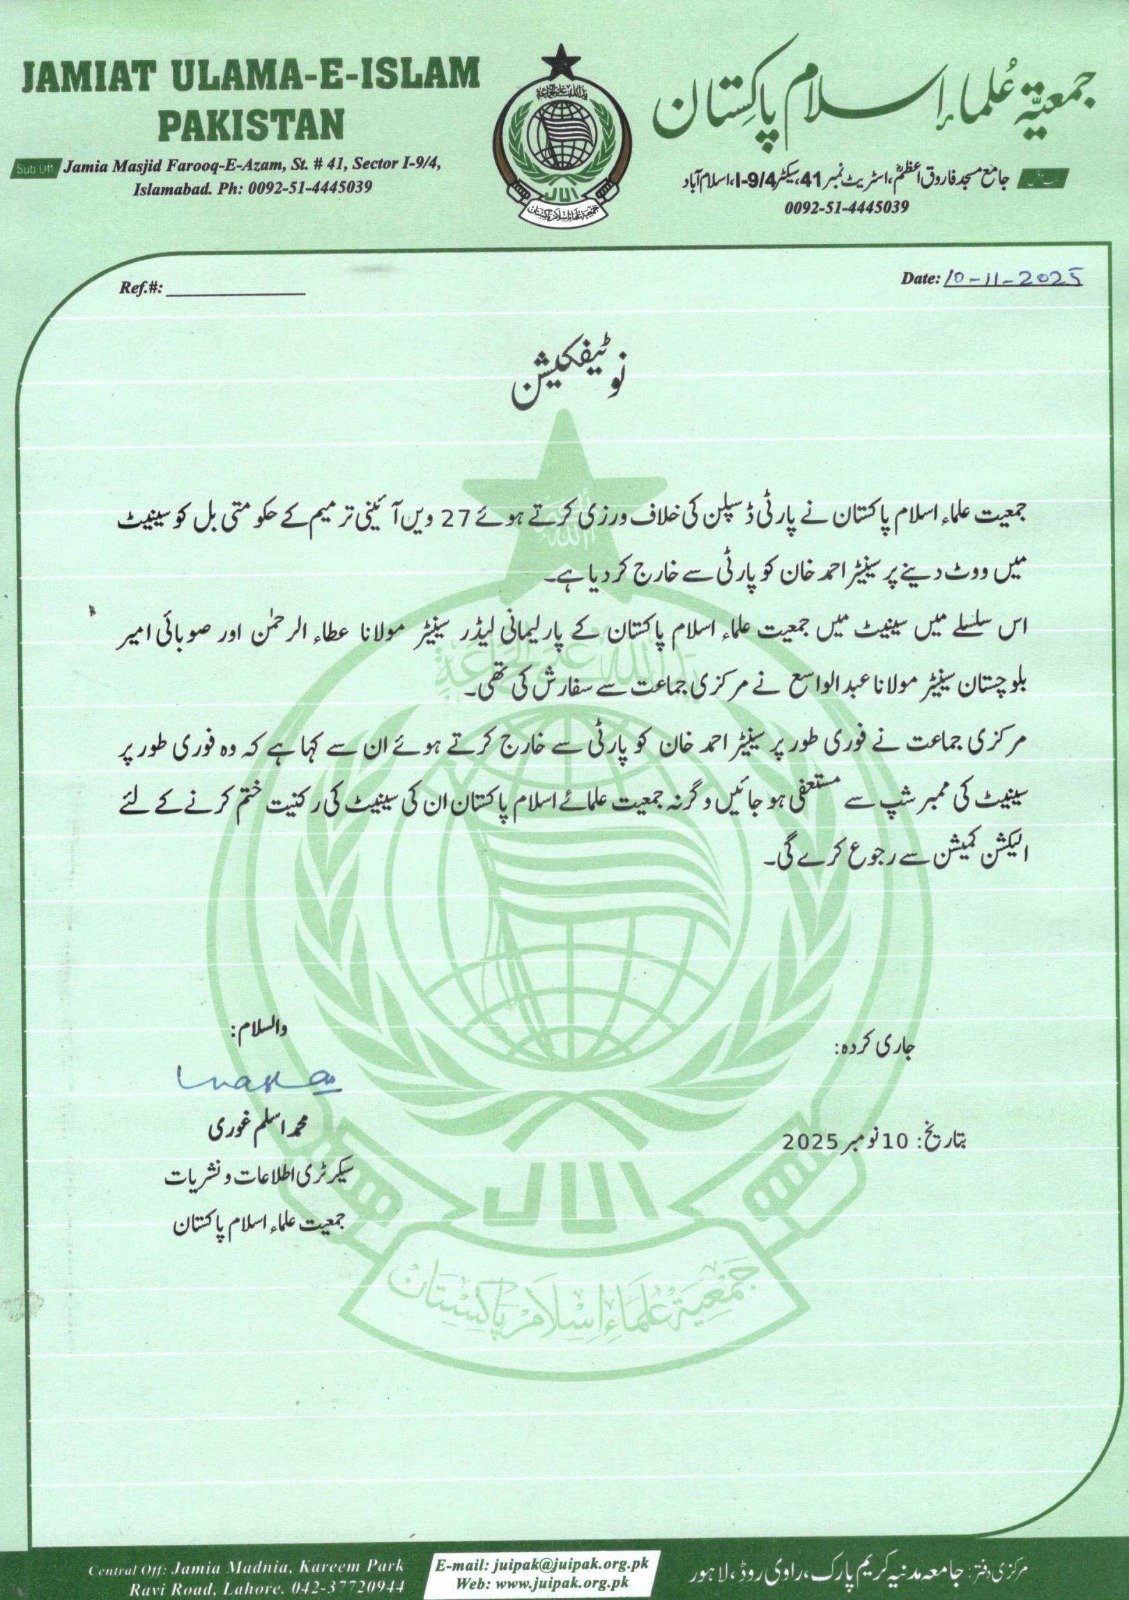 JAMIAT ULAMA-E-ISLAM
PAKISTAN
Sub Off Jamia Masjid Farooq-E-Azam, St. # 41, Sector I-9/4,
Islamabad. Ph: 0092-51-4445039
جمعیۃ علماء اسلام پاکستان
جامع مسجد فاروق اعظمؓ، اسٹریٹ نمبر 41، سیکٹر I-9/4، اسلام آباد
0092-51-4445039
جمعیۃ علماء اسلام پاکستان
Ref.#:
Date: 10-11-2025
نوٹیفکیشن
جمعیت علماء اسلام پاکستان نے پارٹی ڈسپلن کی خلاف ورزی کرتے ہوئے 27 ویں آئینی ترمیم کے حکومتی بل کو سینیٹ
میں ووٹ دینے پر سینیٹر احمد خان کو پارٹی سے خارج کر دیا ہے۔
اس سلسلے میں سینیٹ میں جمعیت علماء اسلام پاکستان کے پارلیمانی لیڈر سینیٹر مولانا عطاء الرحمٰن اور صوبائی امیر
بلوچستان سینیٹر مولانا عبدالواسع نے مرکزی جماعت سے سفارش کی تھی۔
مرکزی جماعت نے فوری طور پر سینیٹر احمد خان کو پارٹی سے خارج کرتے ہوئے ان سے کہا ہے کہ وہ فوری طور پر
سینیٹ کی ممبر شپ سے مستعفی ہو جائیں وگرنہ جمعیت علمائے اسلام پاکستان ان کی سینیٹ کی رکنیت ختم کرنے کے لئے
الیکشن کمیشن سے رجوع کرے گی۔
جاری کردہ:
بتاریخ: 10 نومبر 2025
والسلام:
محمد اسلم غوری
سیکرٹری اطلاعات و نشریات
جمعیت علماء اسلام پاکستان
جمعیۃ علماء اسلام پاکستان
Central Off: Jamia Madnia, Kareem Park
Ravi Road, Lahore. 042-37720944
E-mail: juipak@juipak.org.pk
Web: www.juipak.org.pk
مرکزی دفتر: جامعہ مدنیہ کریم پارک، راوی روڈ، لاہور